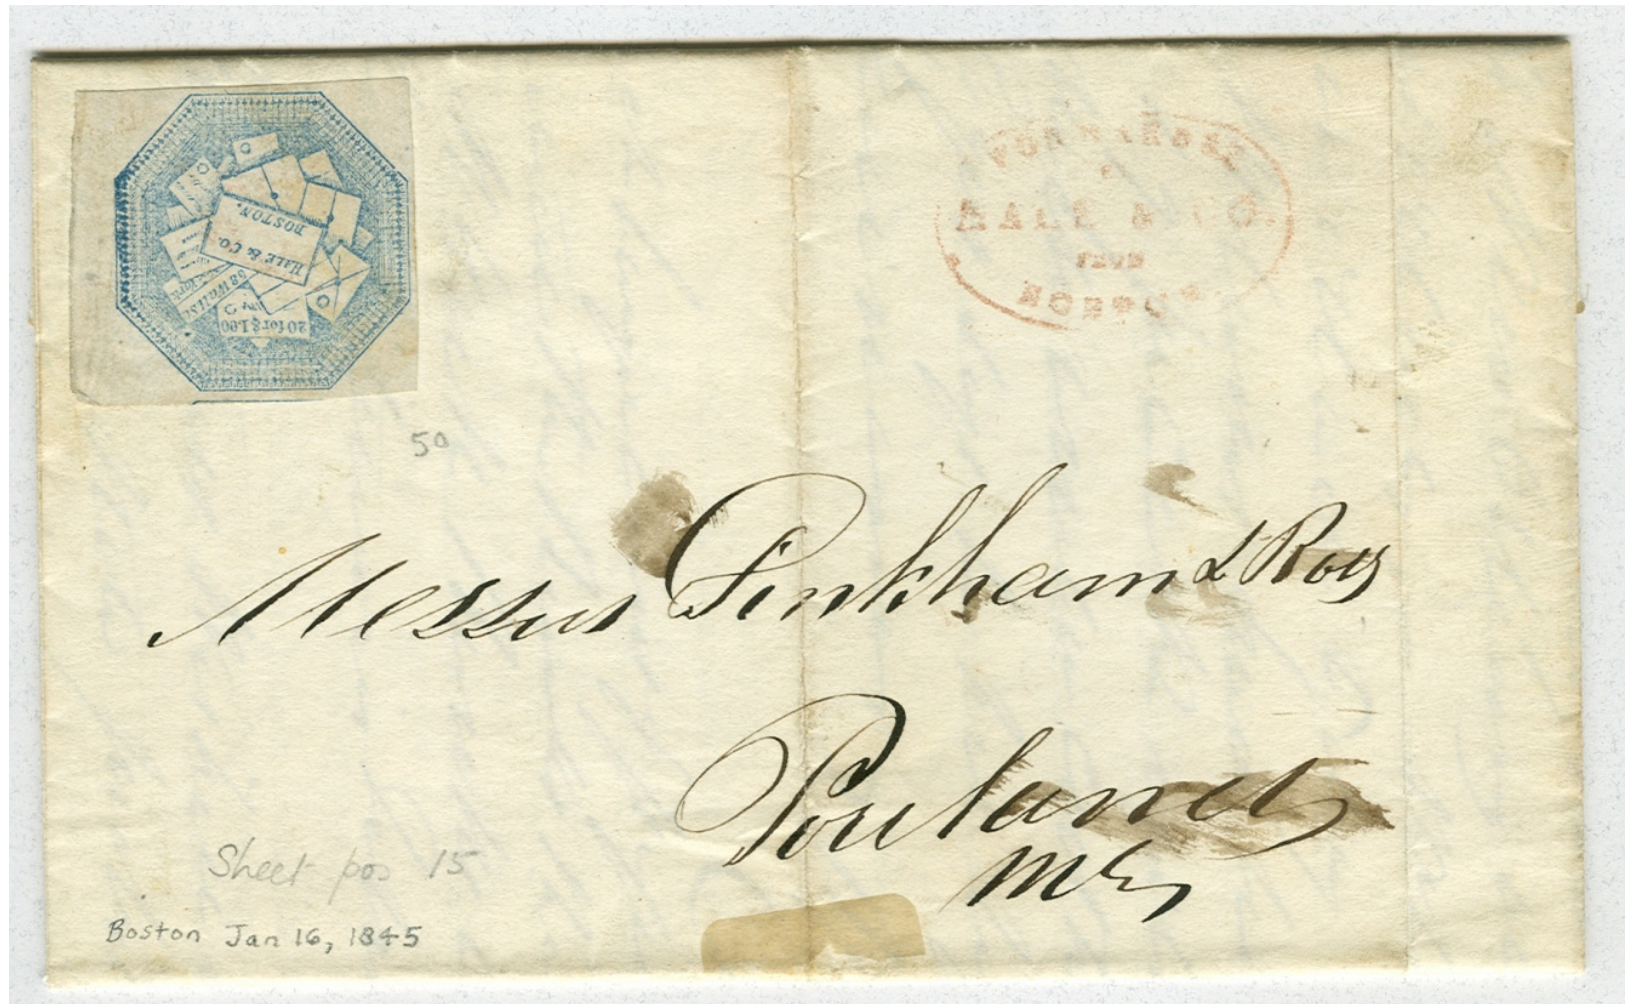 HALE & Co.
BOSTON.
20 for $1.00
FORWARDED
BY
HALE & CO.
FROM
BOSTON
50
Messrs Pinkham & Ross
Portland
Me,
Sheet pos 15
Boston Jan 16, 1845